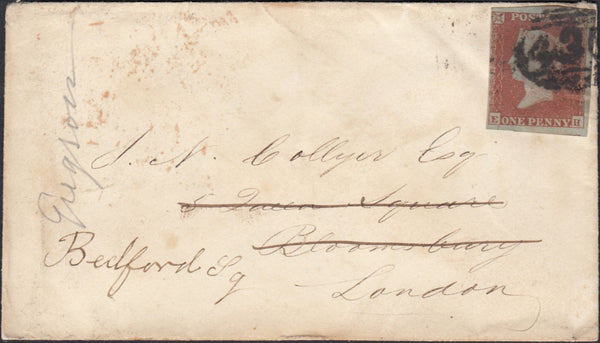 POST
E ONE PENNY H
J. N. Collyer Esq.
5 Queen Square
Bloomsbury
Bedford Sq
London